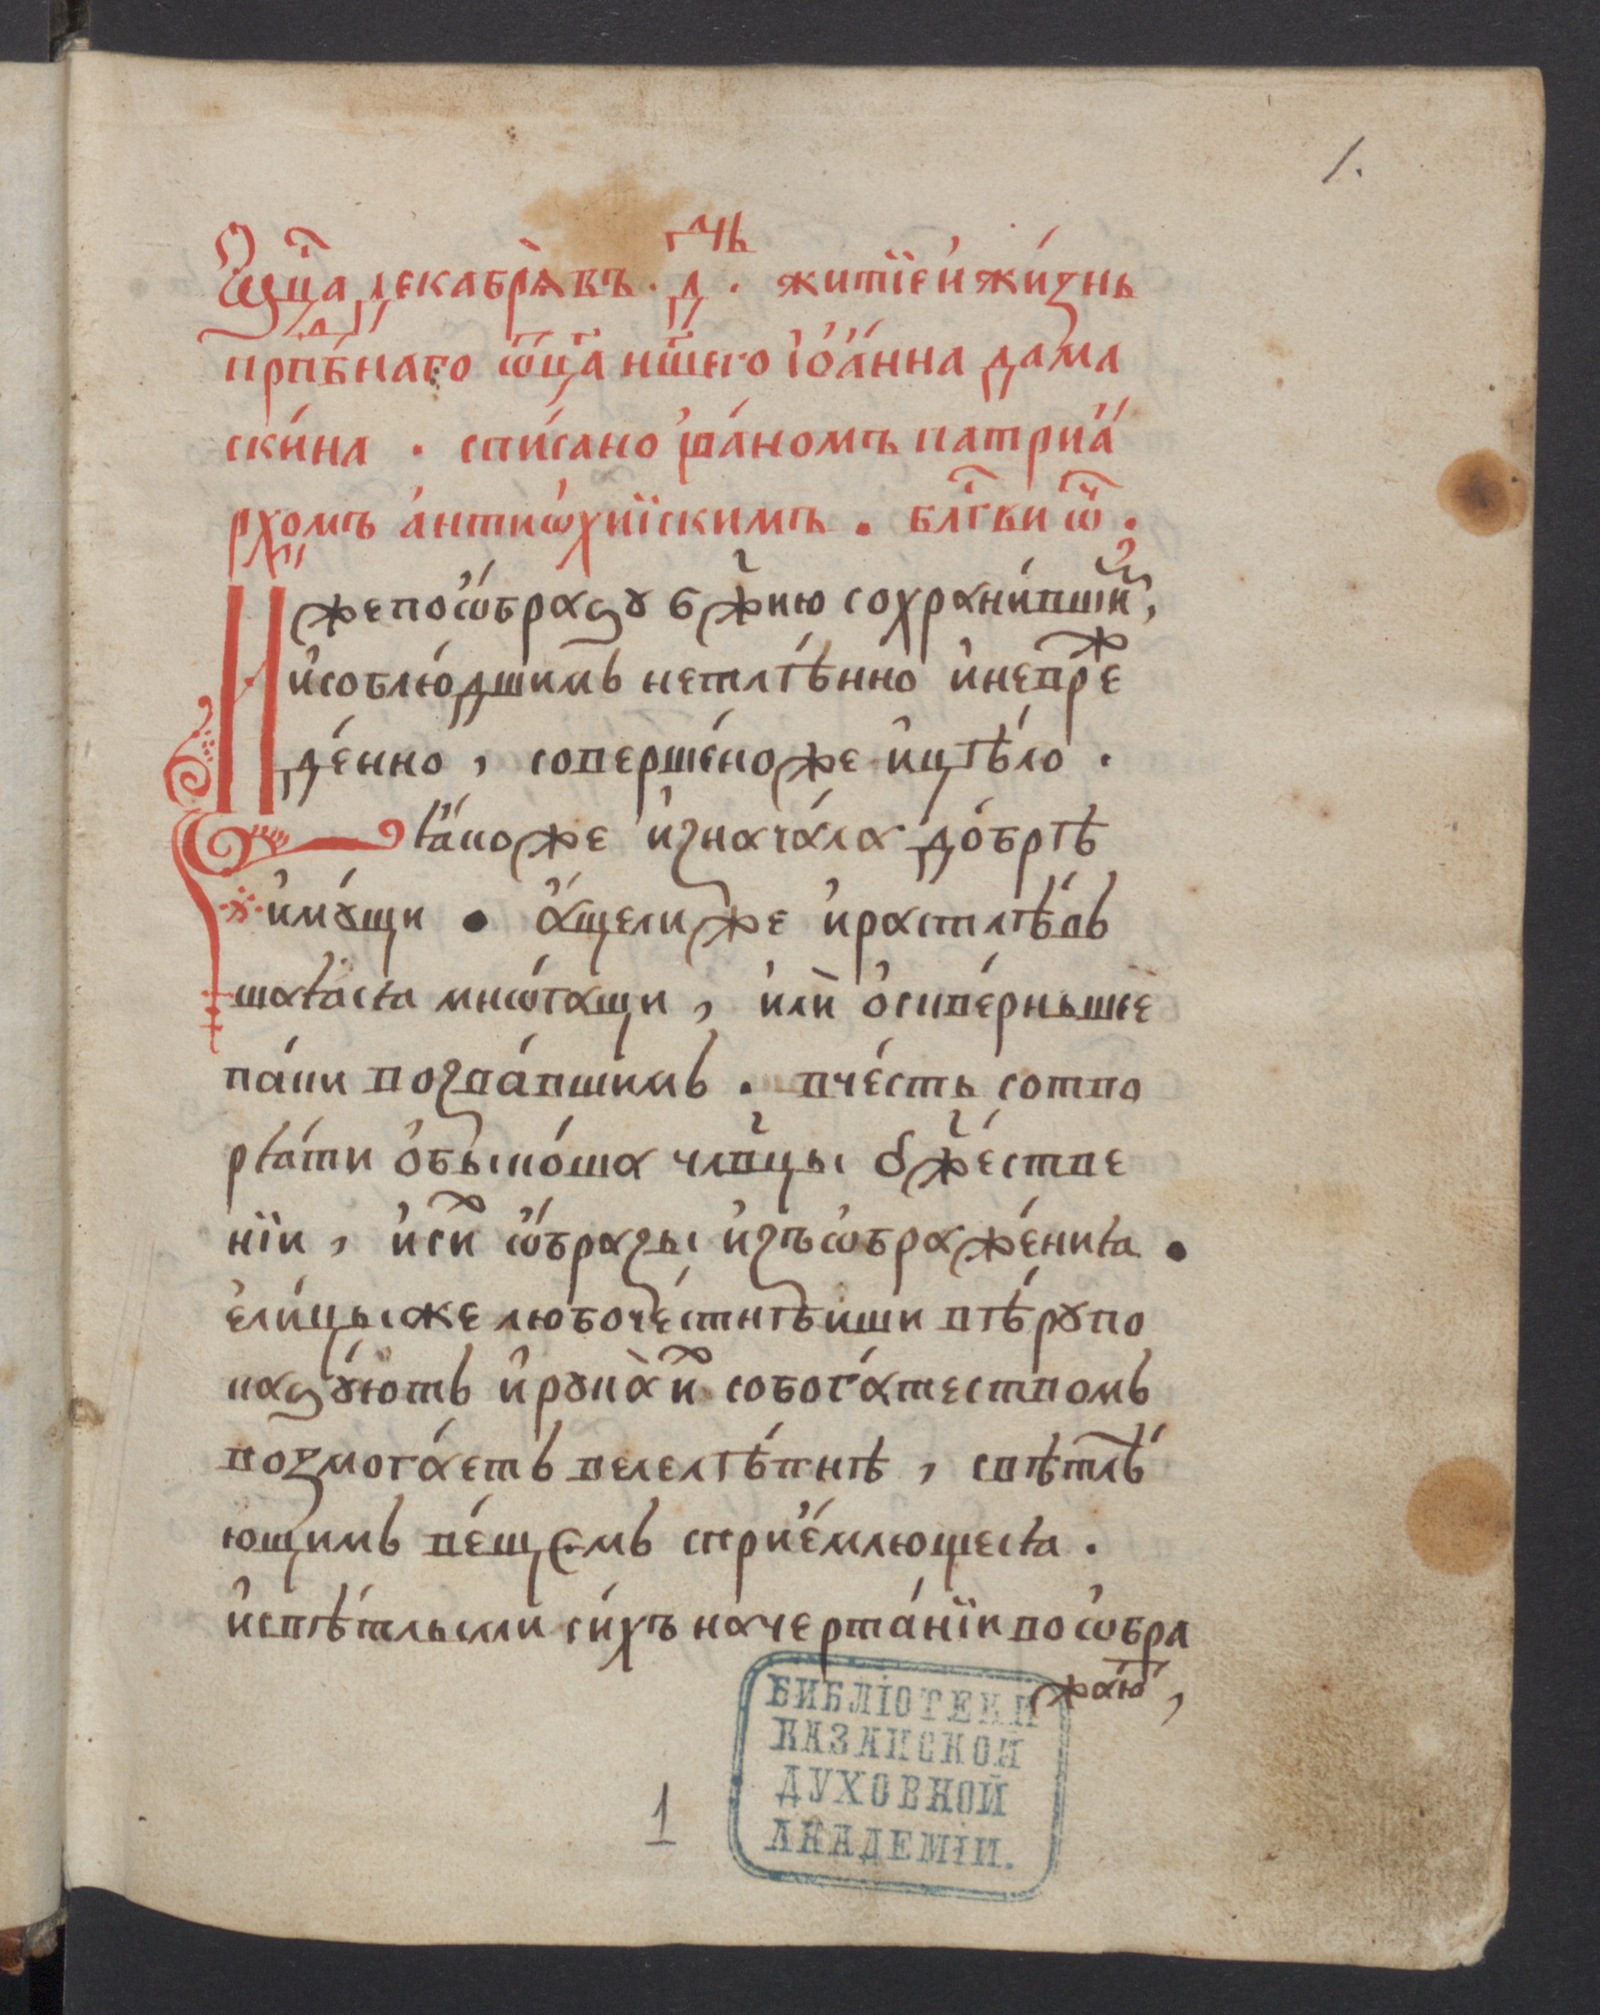 1.
Мц҃а декабрѧ въ · д҃ · дн҃ь житїе и҆ жи́знь
прпⷣбнаго ѿц҃а нш҃его і҆ѡа́нна дама
ски́на · спи́сано і҆ѡа́номъ патриа́
рхомъ а҆нтиѡхи́искимъ . блгⷭ҇ви ѿч҃ .
И же по ѡ҆́бразꙋ бж҃ию сохрани́вши́мъ,
и҆ соблю́дшимъ нетлѣ́нно и҆ невреⷤ
де́нно , соверше́но же и҆ цѣ́ло .
ꙗ҆́коже и҆знача́ла до́брѣ
и҆мꙋ́щи . а҆́ще ли же и҆ растлѣ́в
шаѧсѧ мно́гащи , и҆лѝ ѡ҆скве́рньшее
па́ки возда́вшимъ . в че́сть сотво
рѧ́ти ѡ҆быко́ша чл҃вцы бж҃е́стве
нїи , и҆ си́хъ ѡ҆́бразы и҆зъѡбраже́ниѧ .
е҆ли́цы же любоче́стнѣиши вѣ́рꙋ по
казꙋ́ютъ и҆ рꙋка̀ и҆́хъ со бога́тествомъ
возмога́етъ велелѣ́пнѣ , свѣтлѣ́
ющимъ ве́щемъ сприе́млющесѧ .
и҆ свѣ́тлыми си́хъ начерта́нїи воѡбра
жа́ютъ ,
1
БИБЛІОТЕКИ
КАЗАНСКОЙ
ДУХОВНОЙ
АКАДЕМІИ.